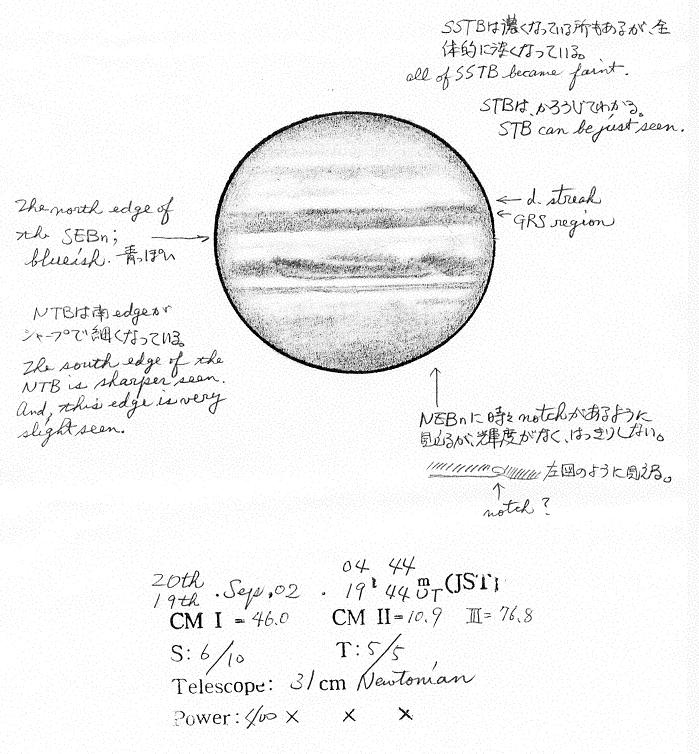 SSTBは濃くなっている所もあるが、全
体的に淡くなっている。
all of SSTB became faint.
STBは、かろうじてわかる。
STB can be just seen.
← d. streak
← GRS region
The north edge of
the SEBn;
blueish. 青っぽい
NTBは南edgeが
シャープで細くなっている。
The south edge of the
NTB is sharper seen.
And, this edge is very
slight seen.
NEBnに時々notchがあるように
見えるが、輝度がなく、はっきりしない。
左図のように見える。
notch?
04 44
20th
19th . Sep, 02 . 19h 44m UT (JST)
CM I = 46.0 CM II = 10.9 III = 76.8
S: 6/10 T: 5/5
Telescope: 31cm Newtonian
Power: 400 × × ×